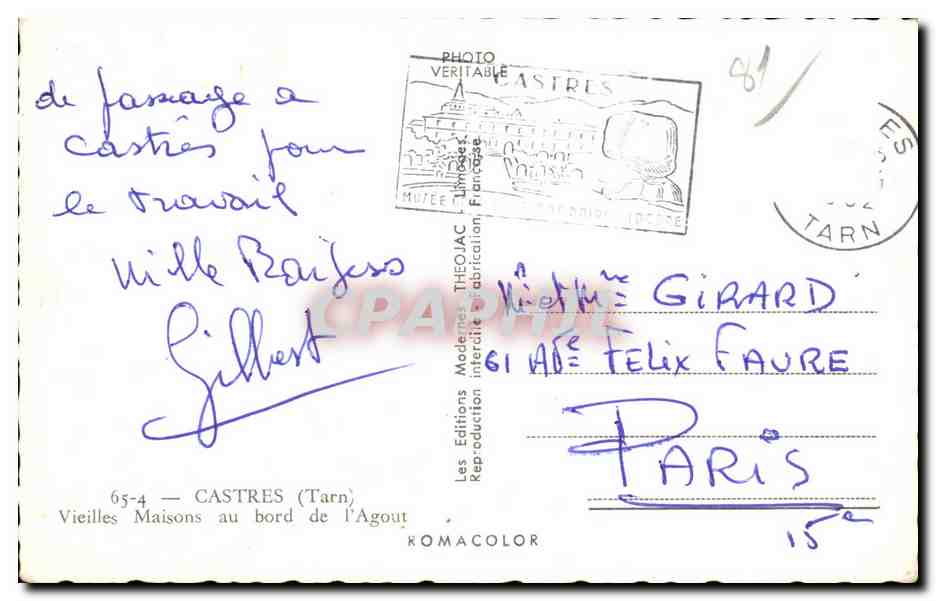 de passage a
Castres pour
le travail
mille Baisers
Gilbert
65-4 — CASTRES (Tarn)
Vieilles Maisons au bord de l'Agout
ROMACOLOR
PHOTO
VERITABLE
Les Editions Modernes THEOJAC - Limoges
Reproduction interdite - Fabrication Française
CASTRES
MUSÉE
81
TARN
CPAPHIL
Mr et Mme GIRARD
61 Ave FELIX FAURE
PARIS
15e